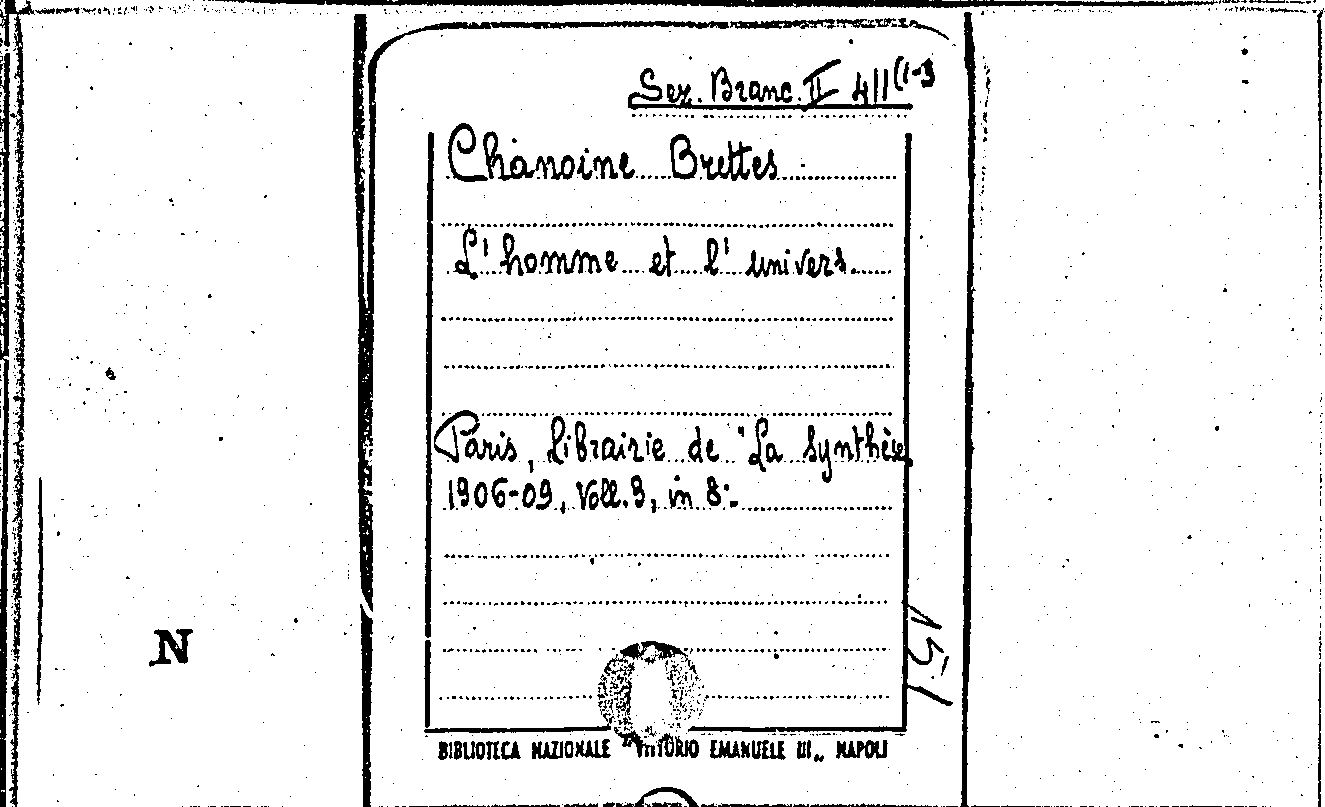 Sez. Branc. II 411(1-3
Chanoine Brettes
L'homme et l'univers.
Paris, Librairie de "La Synthèse
1906-09, Voll. 3, in 8°-
151
N
BIBLIOTECA NAZIONALE "VITTORIO EMANUELE III„ NAPOLI